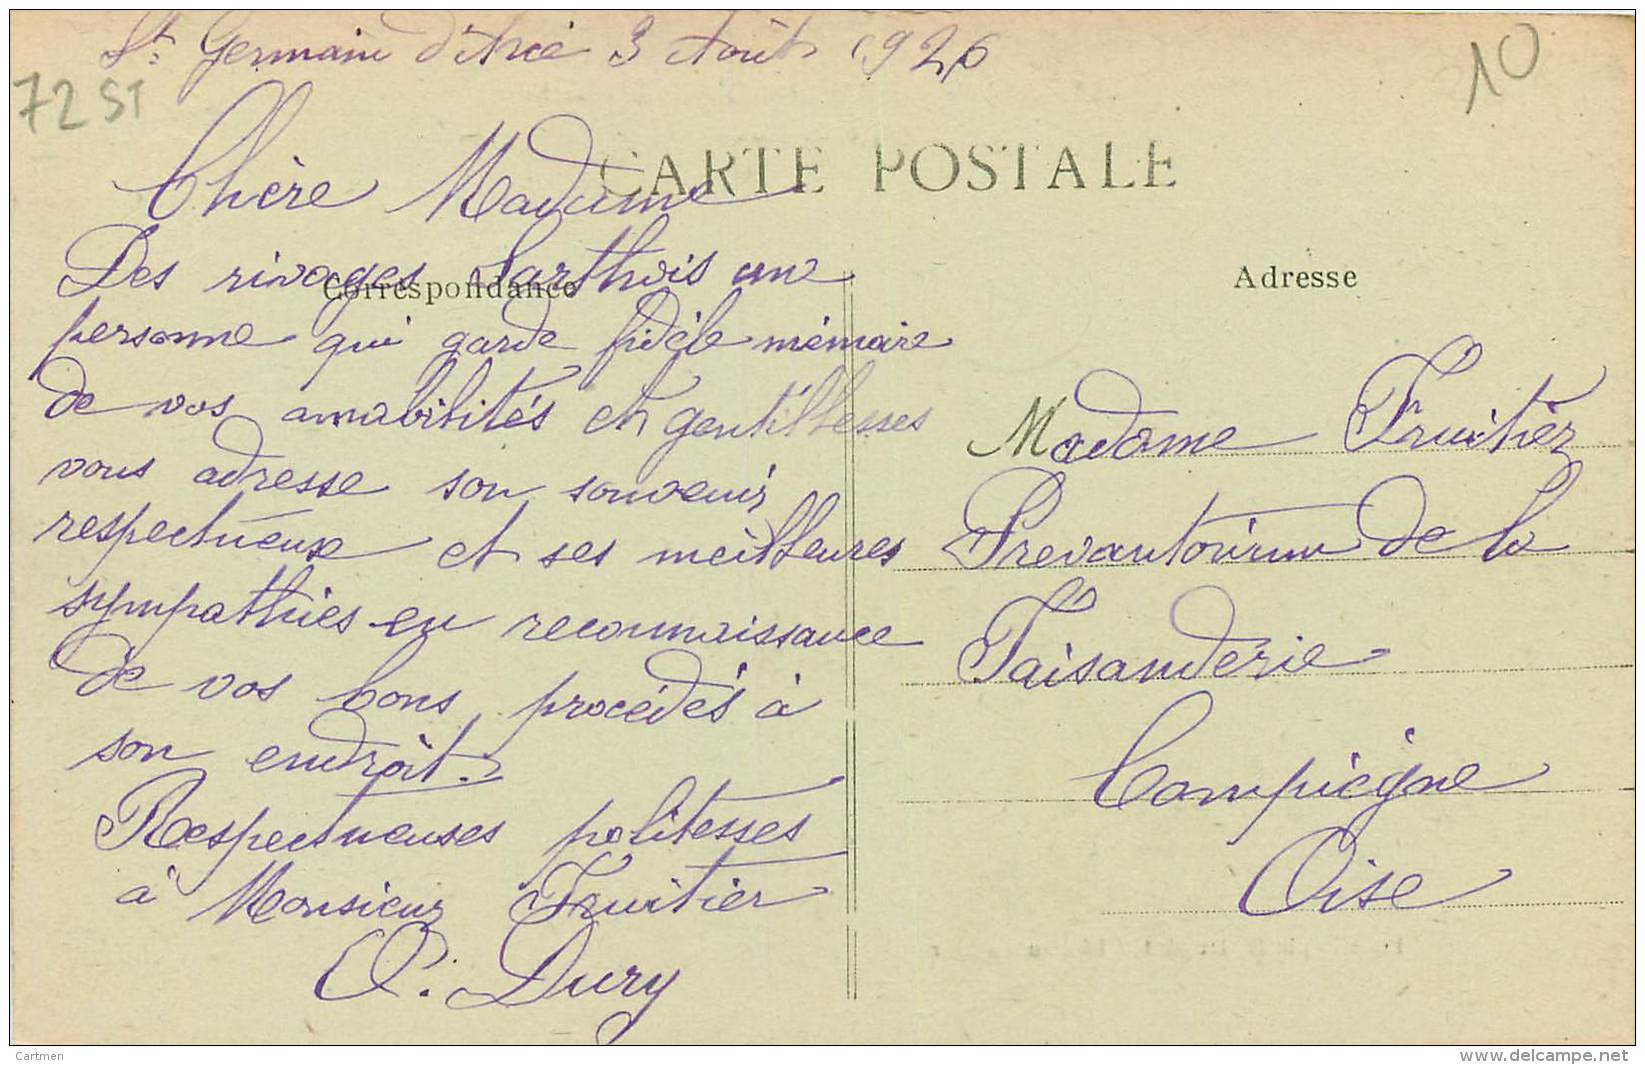 St Germain d'Arcé 3 Août 1926
72 ST
10
CARTE POSTALE
Chère Madame
Correspondance
Des rivages Sarthois une
personne qui garde fidèle mémoire
de vos amabilités et gentillesses
vous adresse son souvenir
respectueux et ses meilleures
sympathies en reconnaissance
de vos bons procédés à
son endroit.
Respectueuses politesses
à Monsieur Fruitier
O. Dury
Adresse
Madame Fruitier
Prevantorium de la
Faisanderie
Compiègne
Oise
Cartmen
www.delcampe.net